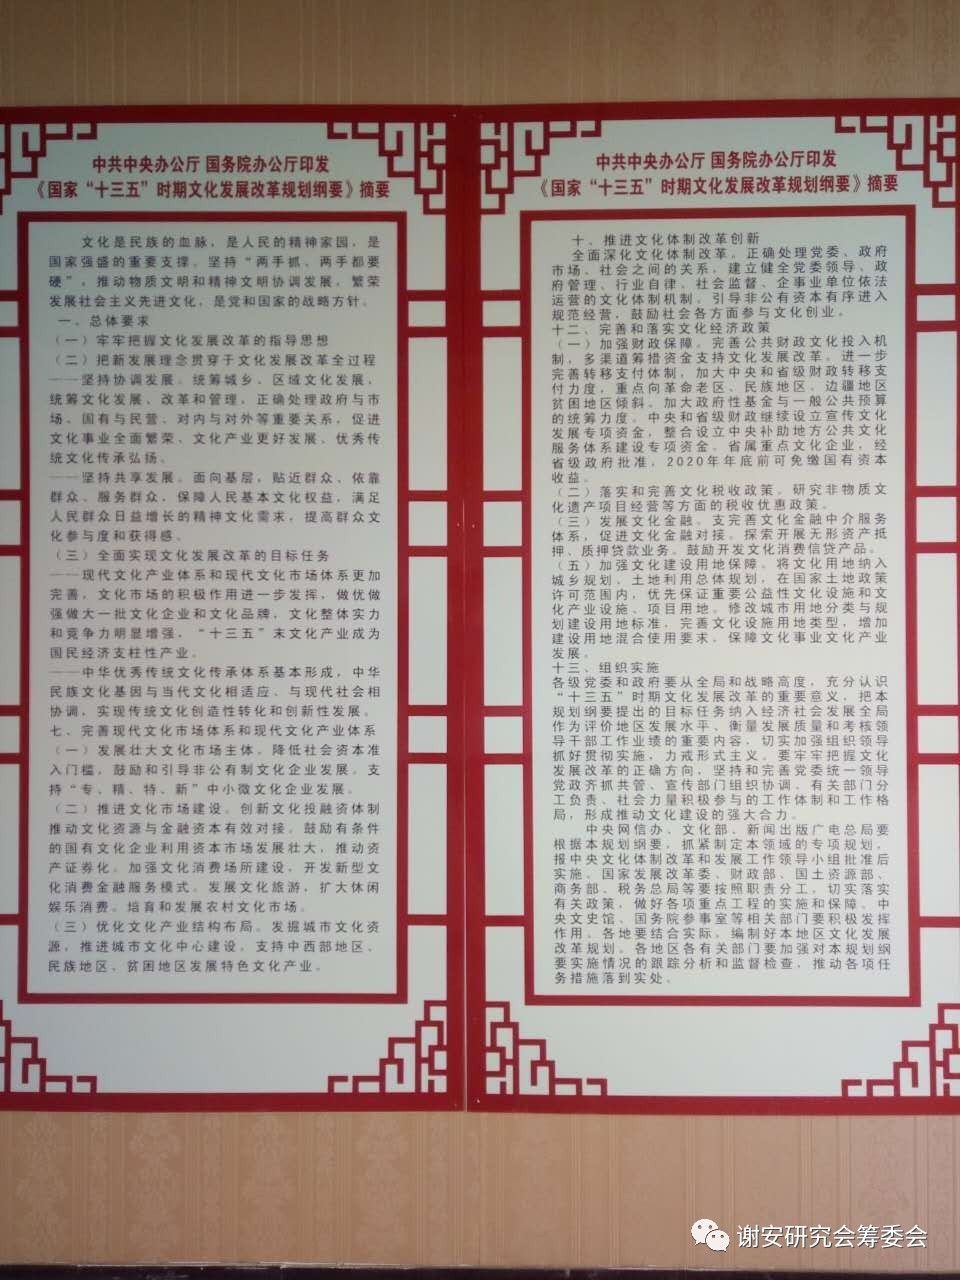 中共中央办公厅 国务院办公厅印发
《国家“十三五”时期文化发展改革规划纲要》摘要
文化是民族的血脉，是人民的精神家园，是
国家强盛的重要支撑。坚持“两手抓、两手都要
硬”，推动物质文明和精神文明协调发展，繁荣
发展社会主义先进文化，是党和国家的战略方针。
一、总体要求
（一）牢牢把握文化发展改革的指导思想
（二）把新发展理念贯穿于文化发展改革全过程
——坚持协调发展。统筹城乡、区域文化发展，
统筹文化发展、改革和管理，正确处理政府与市
场、国有与民营、对内与对外等重要关系，促进
文化事业全面繁荣、文化产业更好发展、优秀传
统文化传承弘扬。
——坚持共享发展。面向基层，贴近群众、依靠
群众、服务群众，保障人民基本文化权益，满足
人民群众日益增长的精神文化需求，提高群众文
化参与度和获得感。
（三）全面实现文化发展改革的目标任务
——现代文化产业体系和现代文化市场体系更加
完善，文化市场的积极作用进一步发挥，做优做
强做大一批文化企业和文化品牌，文化整体实力
和竞争力明显增强，“十三五”末文化产业成为
国民经济支柱性产业。
——中华优秀传统文化传承体系基本形成，中华
民族文化基因与当代文化相适应、与现代社会相
协调，实现传统文化创造性转化和创新性发展。
七、完善现代文化市场体系和现代文化产业体系
（一）发展壮大文化市场主体。降低社会资本准
入门槛，鼓励和引导非公有制文化企业发展。支
持“专、精、特、新”中小微文化企业发展。
（二）推进文化市场建设。创新文化投融资体制
推动文化资源与金融资本有效对接。鼓励有条件
的国有文化企业利用资本市场发展壮大，推动资
产证券化。加强文化消费场所建设，开发新型文
化消费金融服务模式。发展文化旅游，扩大休闲
娱乐消费。培育和发展农村文化市场。
（三）优化文化产业结构布局。发掘城市文化资
源，推进城市文化中心建设，支持中西部地区、
民族地区、贫困地区发展特色文化产业。
中共中央办公厅 国务院办公厅印发
《国家“十三五”时期文化发展改革规划纲要》摘要
十、推进文化体制改革创新
全面深化文化体制改革。正确处理党委、政府
市场、社会之间的关系，建立健全党委领导、政
府管理、行业自律、社会监督、企事业单位依法
运营的文化体制机制。引导非公有资本有序进入
规范经营，鼓励社会各方面参与文化创业。
十二、完善和落实文化经济政策
（一）加强财政保障。完善公共财政文化投入机
制，多渠道筹措资金支持文化发展改革。进一步
完善转移支付体制，加大中央和省级财政转移支
付力度，重点向革命老区、民族地区、边疆地区
贫困地区倾斜。加大政府性基金与一般公共预算
的统筹力度。中央和省级财政继续设立宣传文化
发展专项资金，整合设立中央补助地方公共文化
服务体系建设专项资金。省属重点文化企业，经
省级政府批准，2020年年底前可免缴国有资本
收益。
（二）落实和完善文化税收政策。研究非物质文
化遗产项目经营等方面的税收优惠政策。
（三）发展文化金融。支完善文化金融中介服务
体系，促进文化金融对接。探索开展无形资产抵
押、质押贷款业务。鼓励开发文化消费信贷产品。
（五）加强文化建设用地保障。将文化用地纳入
城乡规划、土地利用总体规划，在国家土地政策
许可范围内，优先保证重要公益性文化设施和文
化产业设施、项目用地。修改城市用地分类与规
划建设用地标准，完善文化设施用地类型，增加
建设用地混合使用要求，保障文化事业文化产业
发展。
十三、组织实施
各级党委和政府要从全局和战略高度，充分认识
“十三五”时期文化发展改革的重要意义，把本
规划纲要提出的目标任务纳入经济社会发展全局
作为评价地区发展水平、衡量发展质量和考核领
导干部工作业绩的重要内容，切实加强组织领导
抓好贯彻实施，力戒形式主义。要牢牢把握文化
发展改革的正确方向，坚持和完善党委统一领导
党政齐抓共管、宣传部门组织协调、有关部门分
工负责、社会力量积极参与的工作体制和工作格
局，形成推动文化建设的强大合力。
中央网信办、文化部、新闻出版广电总局要
根据本规划纲要，抓紧制定本领域的专项规划，
报中央文化体制改革和发展工作领导小组批准后
实施。国家发展改革委、财政部、国土资源部、
商务部、税务总局等要按照职责分工，切实落实
有关政策，做好各项重点工程的实施和保障。中
央文史馆、国务院参事室等相关部门要积极发挥
作用。各地要结合实际，编制好本地区文化发展
改革规划。各地区各有关部门要加强对本规划纲
要实施情况的跟踪分析和监督检查，推动各项任
务措施落到实处。
谢安研究会筹委会